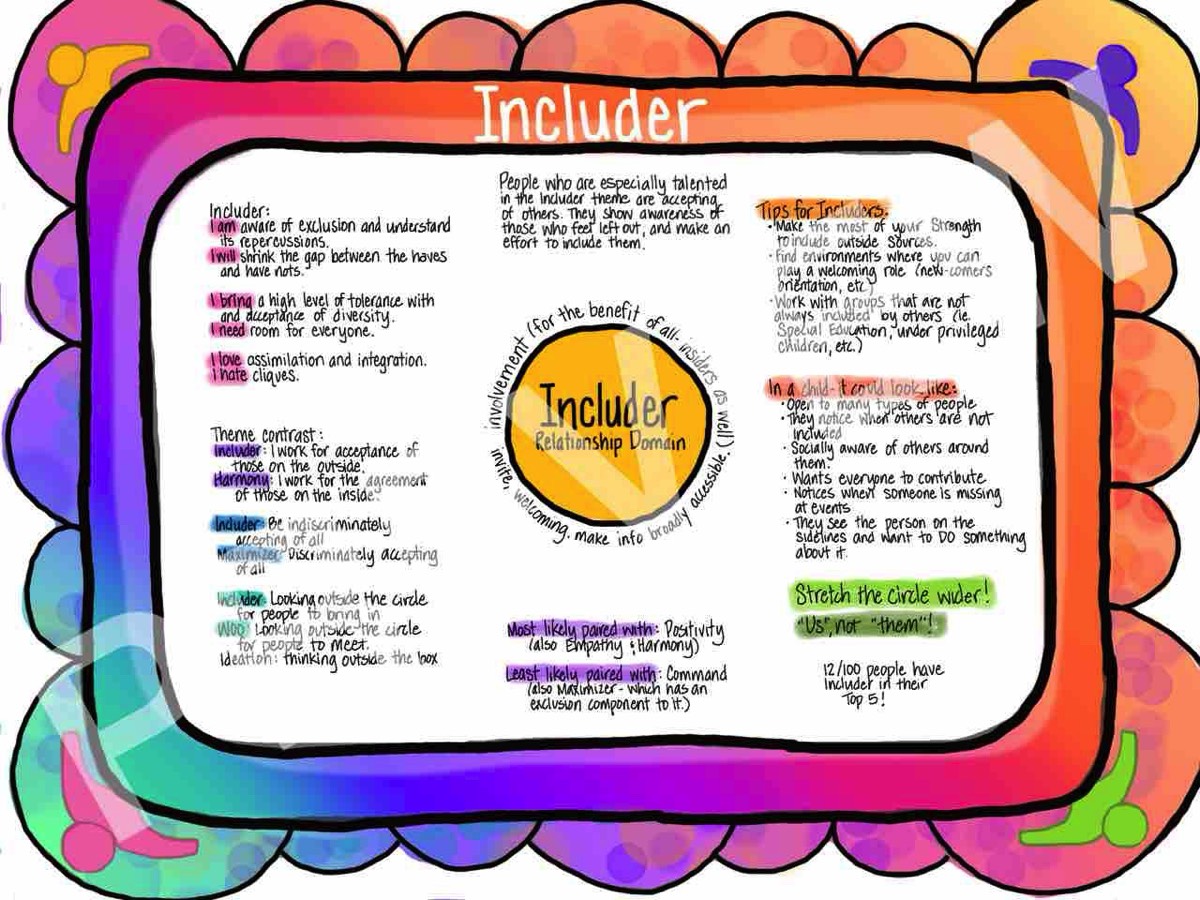 Includer
Includer:
I am aware of exclusion and understand
its repercussions.
I will shrink the gap between the haves
and have nots.
I bring a high level of tolerance with
and acceptance of diversity.
I need room for everyone.
I love assimilation and integration.
I hate cliques.
Theme contrast:
Includer: I work for acceptance of
those on the outside.
Harmony: I work for the agreement
of those on the inside.
Includer: Be indiscriminately
accepting of all
Maximizer: Discriminately accepting
of all
Includer: Looking outside the circle
for people to bring in
Woo: Looking outside the circle
for people to meet.
Ideation: thinking outside the box
People who are especially talented
in the Includer theme are accepting
of others. They show awareness of
those who feel left out, and make an
effort to include them.
involvement (for the benefit of all- insiders as well)
invite, welcoming, make info broadly accessible.
Includer
Relationship Domain
Most likely paired with: Positivity
(also Empathy & Harmony)
Least likely paired with: Command
(also Maximizer - which has an
exclusion component to it.)
Tips for Includers:
• Make the most of your Strength
to include outside sources.
• Find environments where you can
play a welcoming role (new-comers
orientation, etc)
• Work with groups that are not
always included by others (ie.
Special Education, under privileged
children, etc.)
In a child- it could look like:
• Open to many types of people
• They notice when others are not
included
• Socially aware of others around
them.
• Wants everyone to contribute
• Notices when someone is missing
at events
• They see the person on the
sidelines and want to DO something
about it.
Stretch the circle wider!
"Us", not "them"!
12/100 people have
Includer in their
Top 5!